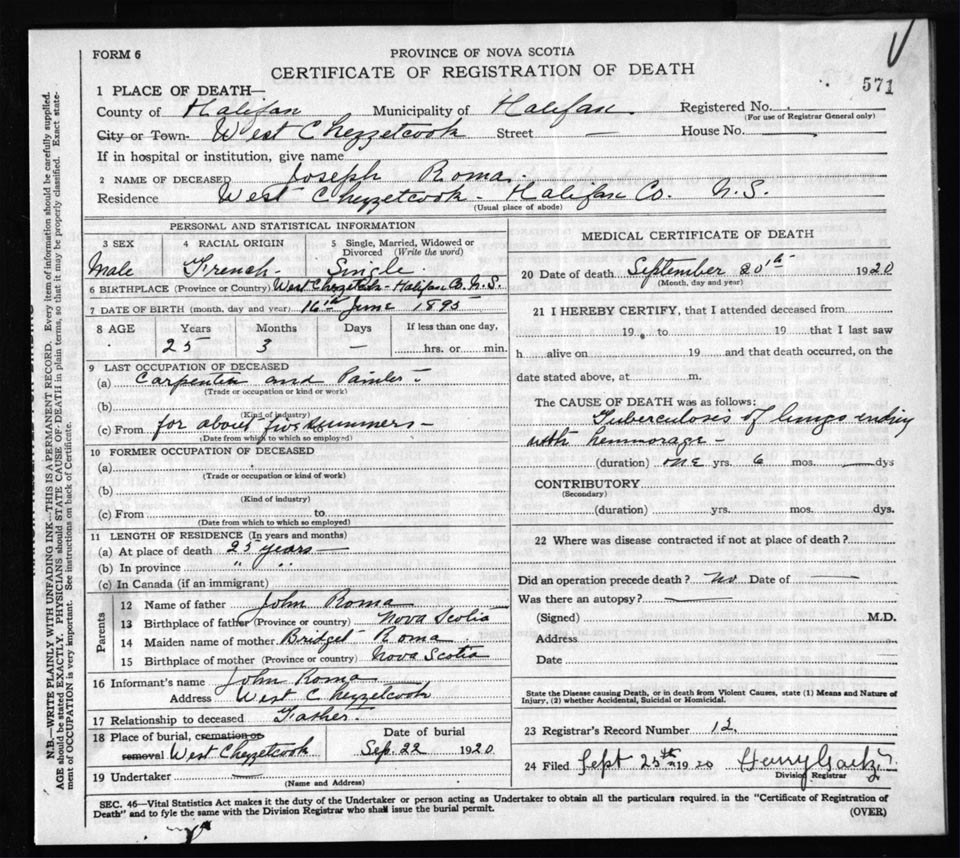 FORM 6
PROVINCE OF NOVA SCOTIA
CERTIFICATE OF REGISTRATION OF DEATH
571
1 PLACE OF DEATH—
County of Halifax Municipality of Halifax Registered No.
(For use of Registrar General only)
City or Town West Chezzetcook Street — House No.
If in hospital or institution, give name
2 NAME OF DECEASED Joseph Roma
Residence West Chezzetcook - Halifax Co. N.S.
(Usual place of abode)
PERSONAL AND STATISTICAL INFORMATION
3 SEX 4 RACIAL ORIGIN 5 Single, Married, Widowed or Divorced (Write the word)
Male French Single
6 BIRTHPLACE (Province or Country) West Chezzetcook - Halifax Co. N.S.
7 DATE OF BIRTH (month, day and year) 16th June 1895
8 AGE Years Months Days If less than one day,
25 3 — hrs. or min.
9 LAST OCCUPATION OF DECEASED
(a) Carpenter and Painter
(Trade or occupation or kind of work)
(b)
(Kind of industry)
(c) From for about five summers -
(Date from which to which so employed)
10 FORMER OCCUPATION OF DECEASED
(a)
(Trade or occupation or kind of work)
(b)
(Kind of industry)
(c) From to
(Date from which to which so employed)
11 LENGTH OF RESIDENCE (In years and months)
(a) At place of death 25 years —
(b) In province " "
(c) In Canada (if an immigrant)
Parents
12 Name of father John Roma
13 Birthplace of father (Province or country) Nova Scotia
14 Maiden name of mother Bridget Roma
15 Birthplace of mother (Province or country) Nova Scotia
16 Informant's name John Roma
Address West Chezzetcook
17 Relationship to deceased Father.
18 Place of burial, cremation or removal West Chezzetcook
Date of burial
Sep. 22 1920
19 Undertaker —
(Name and Address)
MEDICAL CERTIFICATE OF DEATH
20 Date of death September 20th 1920
(Month, day and year)
21 I HEREBY CERTIFY, that I attended deceased from
19 to 19 that I last saw
h alive on 19 and that death occurred, on the
date stated above, at m.
The CAUSE OF DEATH was as follows:
Tuberculosis of lungs ending
with hemmorage -
(duration) one yrs. 6 mos. — dys
CONTRIBUTORY
(Secondary)
(duration) yrs. mos. dys.
22 Where was disease contracted if not at place of death?
Did an operation precede death? No Date of —
Was there an autopsy? —
(Signed) M.D.
Address
Date
State the Disease causing Death, or in death from Violent Causes, state (1) Means and Nature of
Injury, (2) whether Accidental, Suicidal or Homicidal.
23 Registrar's Record Number 12
24 Filed Sept 25th 1920 Henry
Division Registrar
SEC. 46—Vital Statistics Act makes it the duty of the Undertaker or person acting as Undertaker to obtain all the particulars required in the "Certificate of Registration of
Death" and to fyle the same with the Division Registrar who shall issue the burial permit.
(OVER)
N.B.—WRITE PLAINLY WITH UNFADING INK—THIS IS A PERMANENT RECORD. Every item of information should be carefully supplied.
AGE should be stated EXACTLY. PHYSICIANS should STATE CAUSE OF DEATH in plain terms, so that it may be properly classified. Exact state-
ment of OCCUPATION is very important. See instructions on back of Certificate.